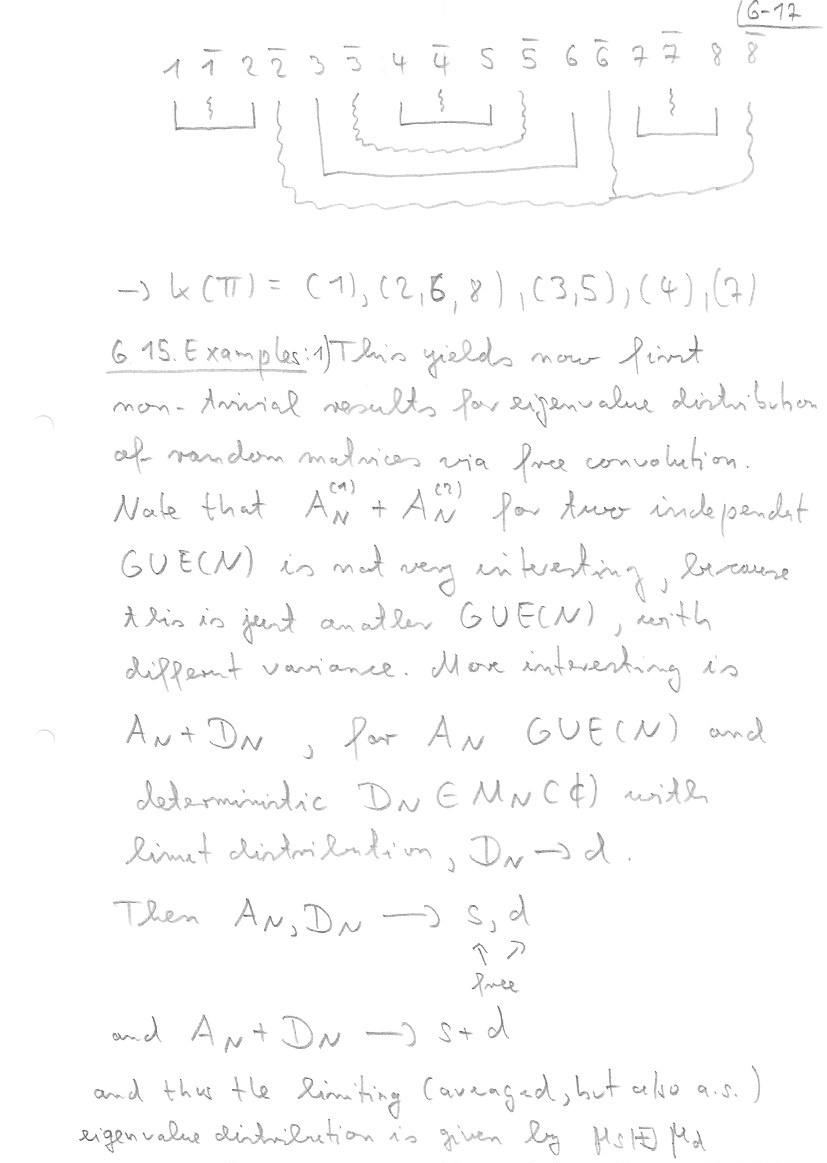 6-17
1 1̄ 2 2̄ 3 3̄ 4 4̄ 5 5̄ 6 6̄ 7 7̄ 8 8̄
→ K(π) = (1), (2,6,8), (3,5), (4), (7)
6.15. Examples: 1) This yields now first
non-trivial results for eigenvalue distribution
of random matrices via free convolution.
Note that A_N^(1) + A_N^(2) for two independent
GUE(N) is not very interesting, because
this is just another GUE(N), with
different variance. More interesting is
A_N + D_N, for A_N GUE(N) and
deterministic D_N ∈ M_N(ℂ) with
limit distribution, D_N → d.
Then A_N, D_N → s, d
↑ ↗
free
and A_N + D_N → s + d
and thus the limiting (averaged, but also a.s.)
eigenvalue distribution is given by μ_s ⊞ μ_d